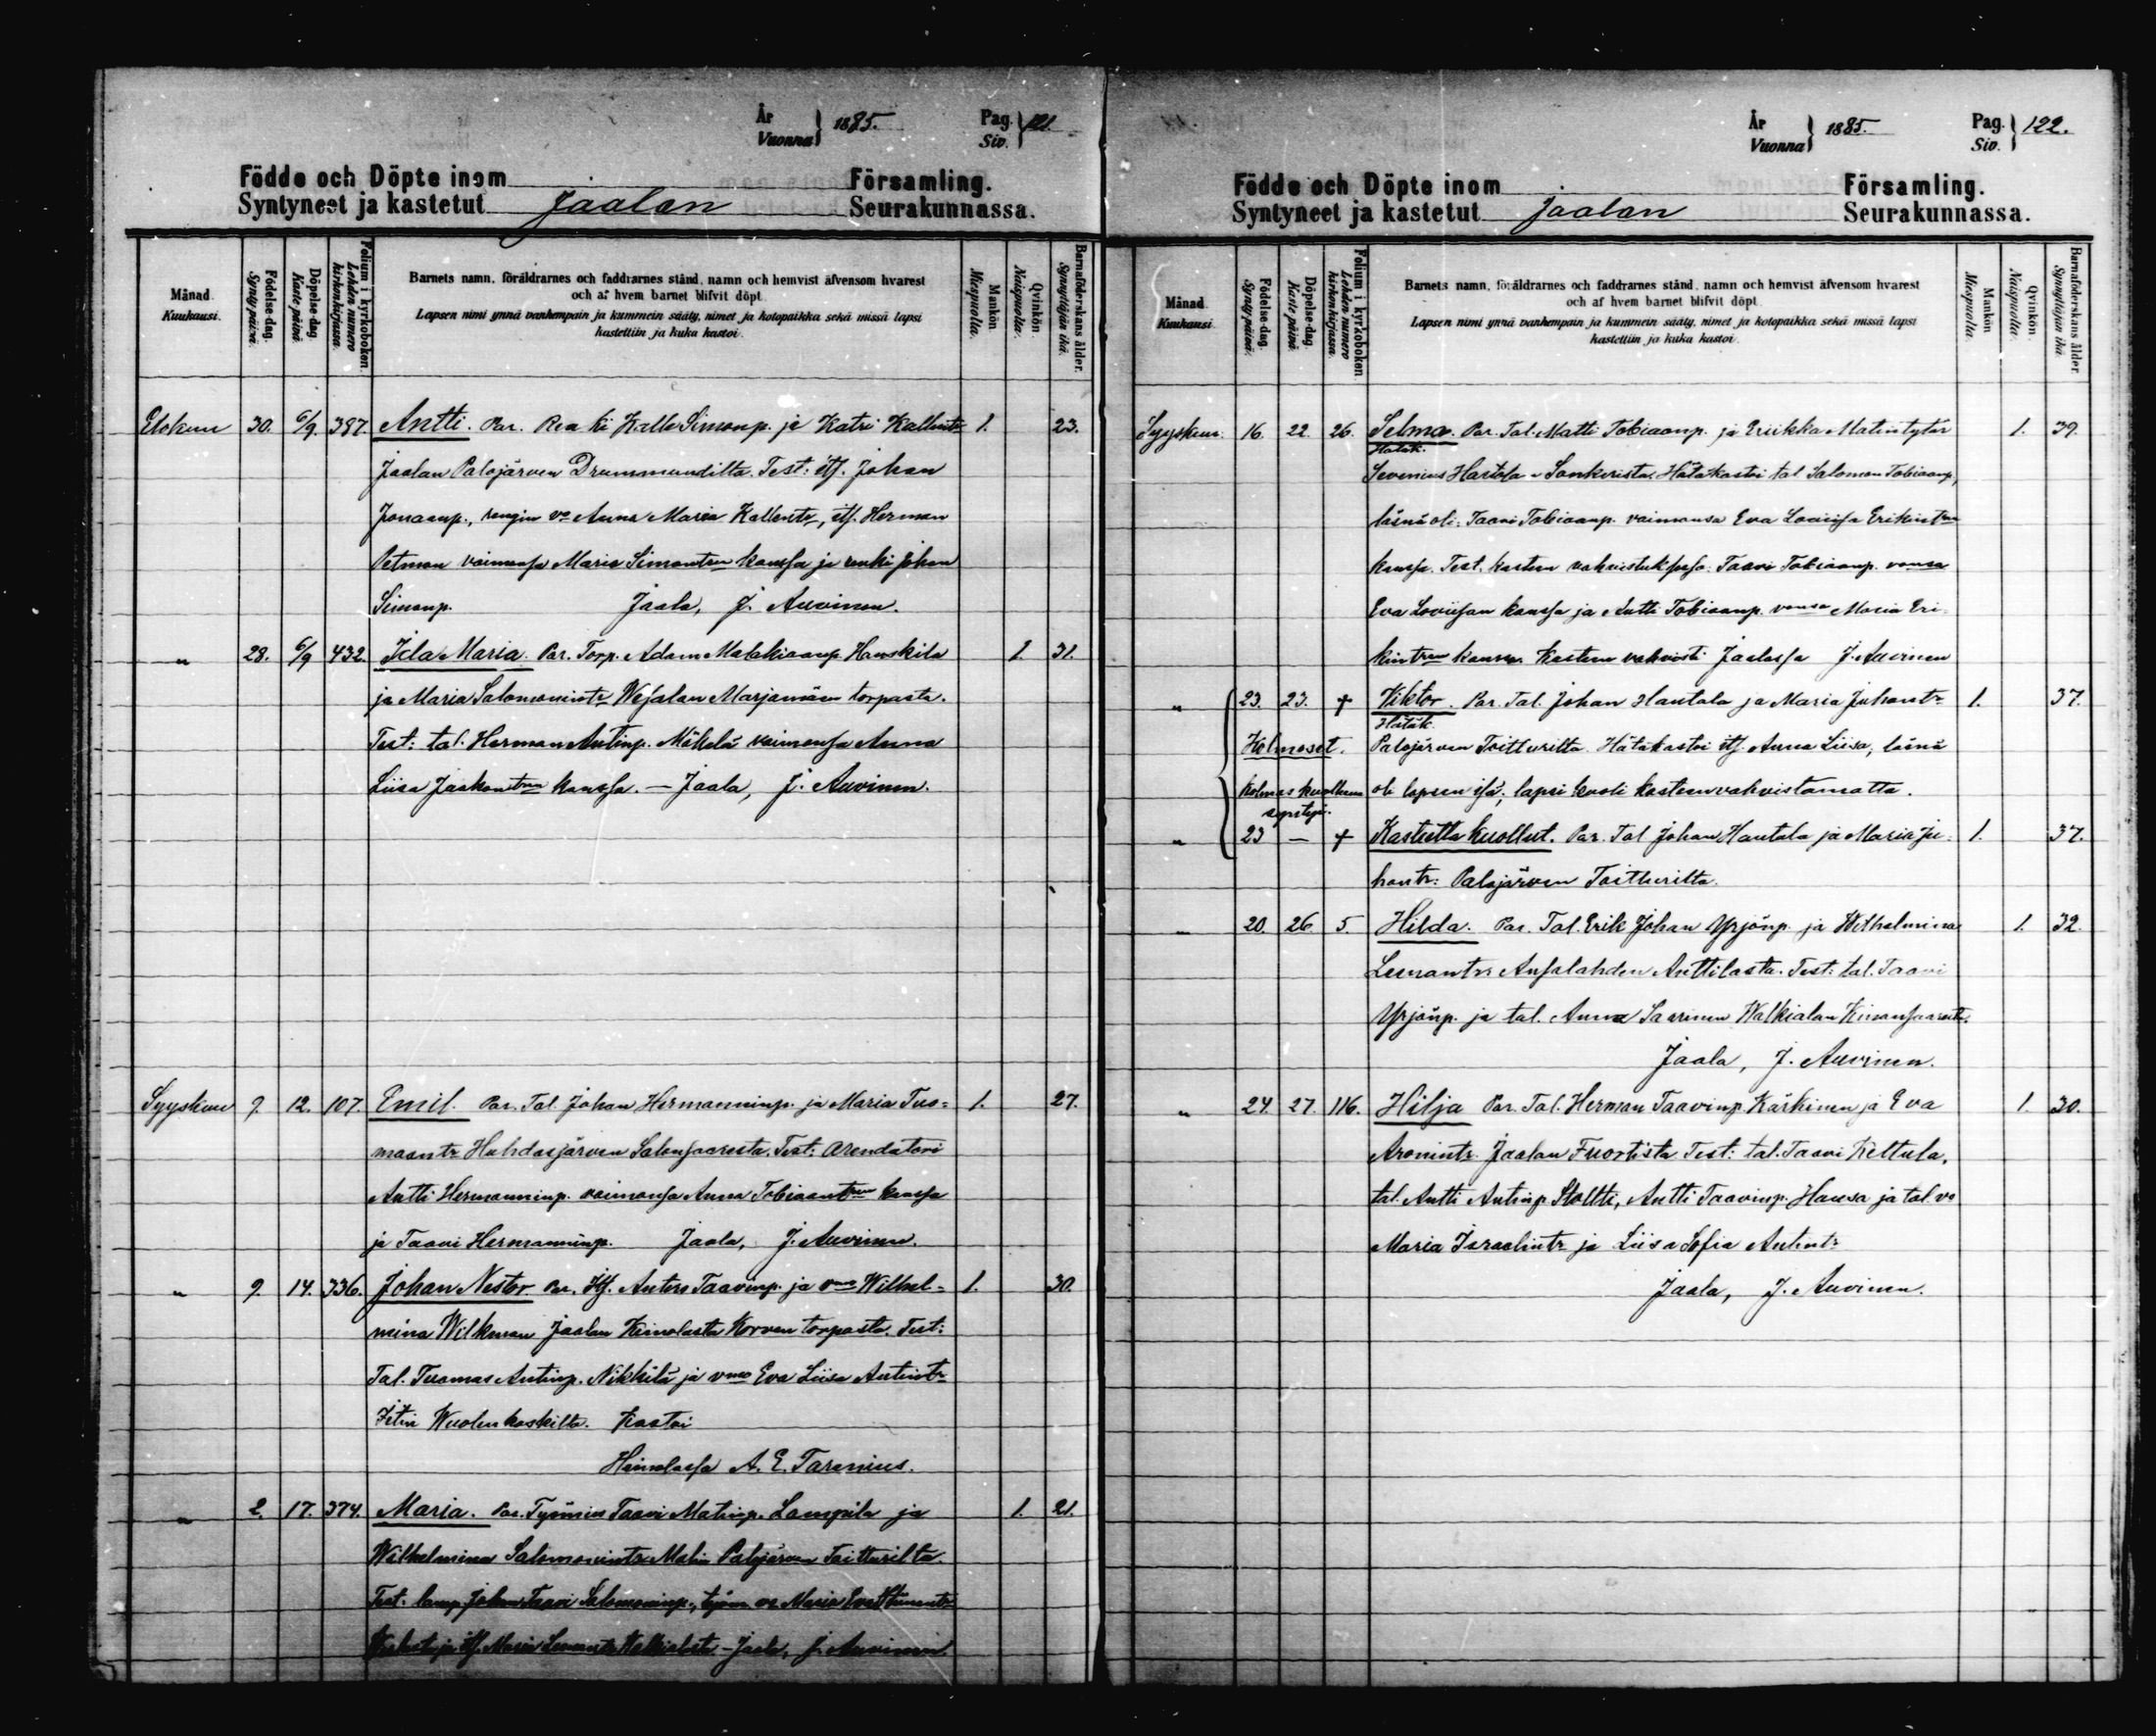 År
Vuonna } 1885.
Pag.
Siv. } 121.
Födde och Döpte inom Församling.
Syntyneet ja kastetut Jaalan Seurakunnassa.
Månad. Kuukausi.
Födelse-dag. Synty-päivä.
Döpelse-dag. Kaste-päivä.
Folium i kyrkoboken. Lehden numero kirkonkirjassa.
Barnets namn, föräldrarnes och faddrarnes stånd, namn och hemvist äfvensom hvarest
och af hvem barnet blifvit döpt.
Lapsen nimi ynnä vanhempain ja kummein sääty, nimet ja kotopaikka sekä missä lapsi
kastettiin ja kuka kastoi.
Mankön. Miespuolia.
Qvinkön. Naispuolia.
Barnaföderskans ålder. Synnyttäjän ikä.
Elokuu 30. 6/9. 387. Antti. Par. Renki Kalle Simonp. ja Katri Kallentr 1. 23.
Jaalan Palojärven Drummundilta. Test: itf. Johan
Jonaanp., rengin vo Anna Maria Kallentr, itf. Herman
Petman vaimonsa Maria Simontren kanssa ja renki Johan
Simonp. Jaala, J. Auvinen.
" 28. 6/9 432. Ida Maria. Par. Torp. Adam Malakiaanp. Hauskila 1. 31.
ja Maria Salomonintr Wesalan Marjamäen torpasta.
Test: tal. Herman Antinp. Mäkelä vaimonsa Anna
Liisa Jaakontren kanssa. – Jaala, J. Auvinen.
Syyskuu 9. 12. 107. Emil. Par. Tal. Johan Hermanninp. ja Maria Tuo= 1. 27.
maantr Huhdasjärven Salonsaaresta. Test: Arendatori
Antti Hermanninp. vaimonsa Anna Tobiaantren kanssa
ja Taavi Hermanninp. Jaala, J. Auvinen.
" 9. 14. 336. Johan Nestor Par. Itf. Anters Taavinp. ja vmo Wilhel= 1. 30.
mina Wilkman Jaalan Kimolasta Korven torpasta. Test:
Tal. Tuomas Antinp. Nikkilä ja vmo Eva Liisa Antintr
Iitin Wuolenkoskilta. Kastoi
Heinolassa A. E. Tarenius.
" 2. 17. 374. Maria. Par. Työmies Taavi Matinp. Lampila ja 1. 21.
Wilhelmina Salomonintr Malin Palojärven Toitturilta.
Test: Johan Taavi Salomoninp., työm. vo Maria Eva
ja itf. Maria Walkialasta – Jaala, J. Auvinen.
År
Vuonna } 1885.
Pag.
Siv. } 122.
Födde och Döpte inom Församling.
Syntyneet ja kastetut Jaalan Seurakunnassa.
Månad. Kuukausi.
Födelse-dag. Synty-päivä.
Döpelse-dag. Kaste-päivä.
Folium i kyrkoboken. Lehden numero kirkonkirjassa.
Barnets namn, föräldrarnes och faddrarnes stånd, namn och hemvist äfvensom hvarest
och af hvem barnet blifvit döpt.
Lapsen nimi ynnä vanhempain ja kummein sääty, nimet ja kotopaikka sekä missä lapsi
kastettiin ja kuka kastoi.
Mankön. Miespuolia.
Qvinkön. Naispuolia.
Barnaföderskans ålder. Synnyttäjän ikä.
Syyskuu. 16. 22. 26. Selma. Par. Tal. Matti Tobiaanp. ja Eriikka Matintytär 1. 39.
Hätäk.
Hartola Sonkerista. Hätäkastoi tal Salomon Tobiaanp,
läsnä oli: Taavi Tobiaanp. vaimonsa Eva Loviisa Erikintren
kanssa. Test. kasteen vahvistuksessa: Taavi Tobiaanp. vmonsa
Eva Loviisan kanssa ja Antti Tobiaanp. vmonsa Maria Eri-
kintren kanssa. Kasteen vahvisti Jaalassa J. Auvinen
" 23. 23. + Viktor. Par. Tal. Johan Hautala ja Maria Juhontr 1. 37.
Hätäk.
Kolmoset. Palojärven Toitturilta. Hätäkastoi itf. Anna Liisa, läsnä
Kolmas kuolleena oli lapsen isä; lapsi kuoli kasteenvahvistamatta.
syntyi.
" 23 — + Kastetta kuollut. Par. Tal Johan Hautala ja Maria Ju- 1. 37.
hontr: Palojärven Toitturilta.
" 20. 26. 5. Hilda. Par. Tal. Erik Johan Yrjönp. ja Wilhelmina 1. 32.
Leenantr Ansalahden Anttilasta. Test: tal. Taavi
Yrjönp. ja tal. Anna Saarinen Walkialan Kinansaaresta.
Jaala, J. Auvinen.
" 24. 27. 116. Hilja Par. Tal. Herman Taavinp. Kärkinen ja Eva 1. 30.
Aronintr. Jaalan Fuortista. Test: tal. Taavi Kettula,
tal. Antti Antinp. Stoltti, Antti Taavinp. Hausa ja tal. vo
Maria Israelintr ja Liisa Sofia Antintr
Jaala, J. Auvinen.